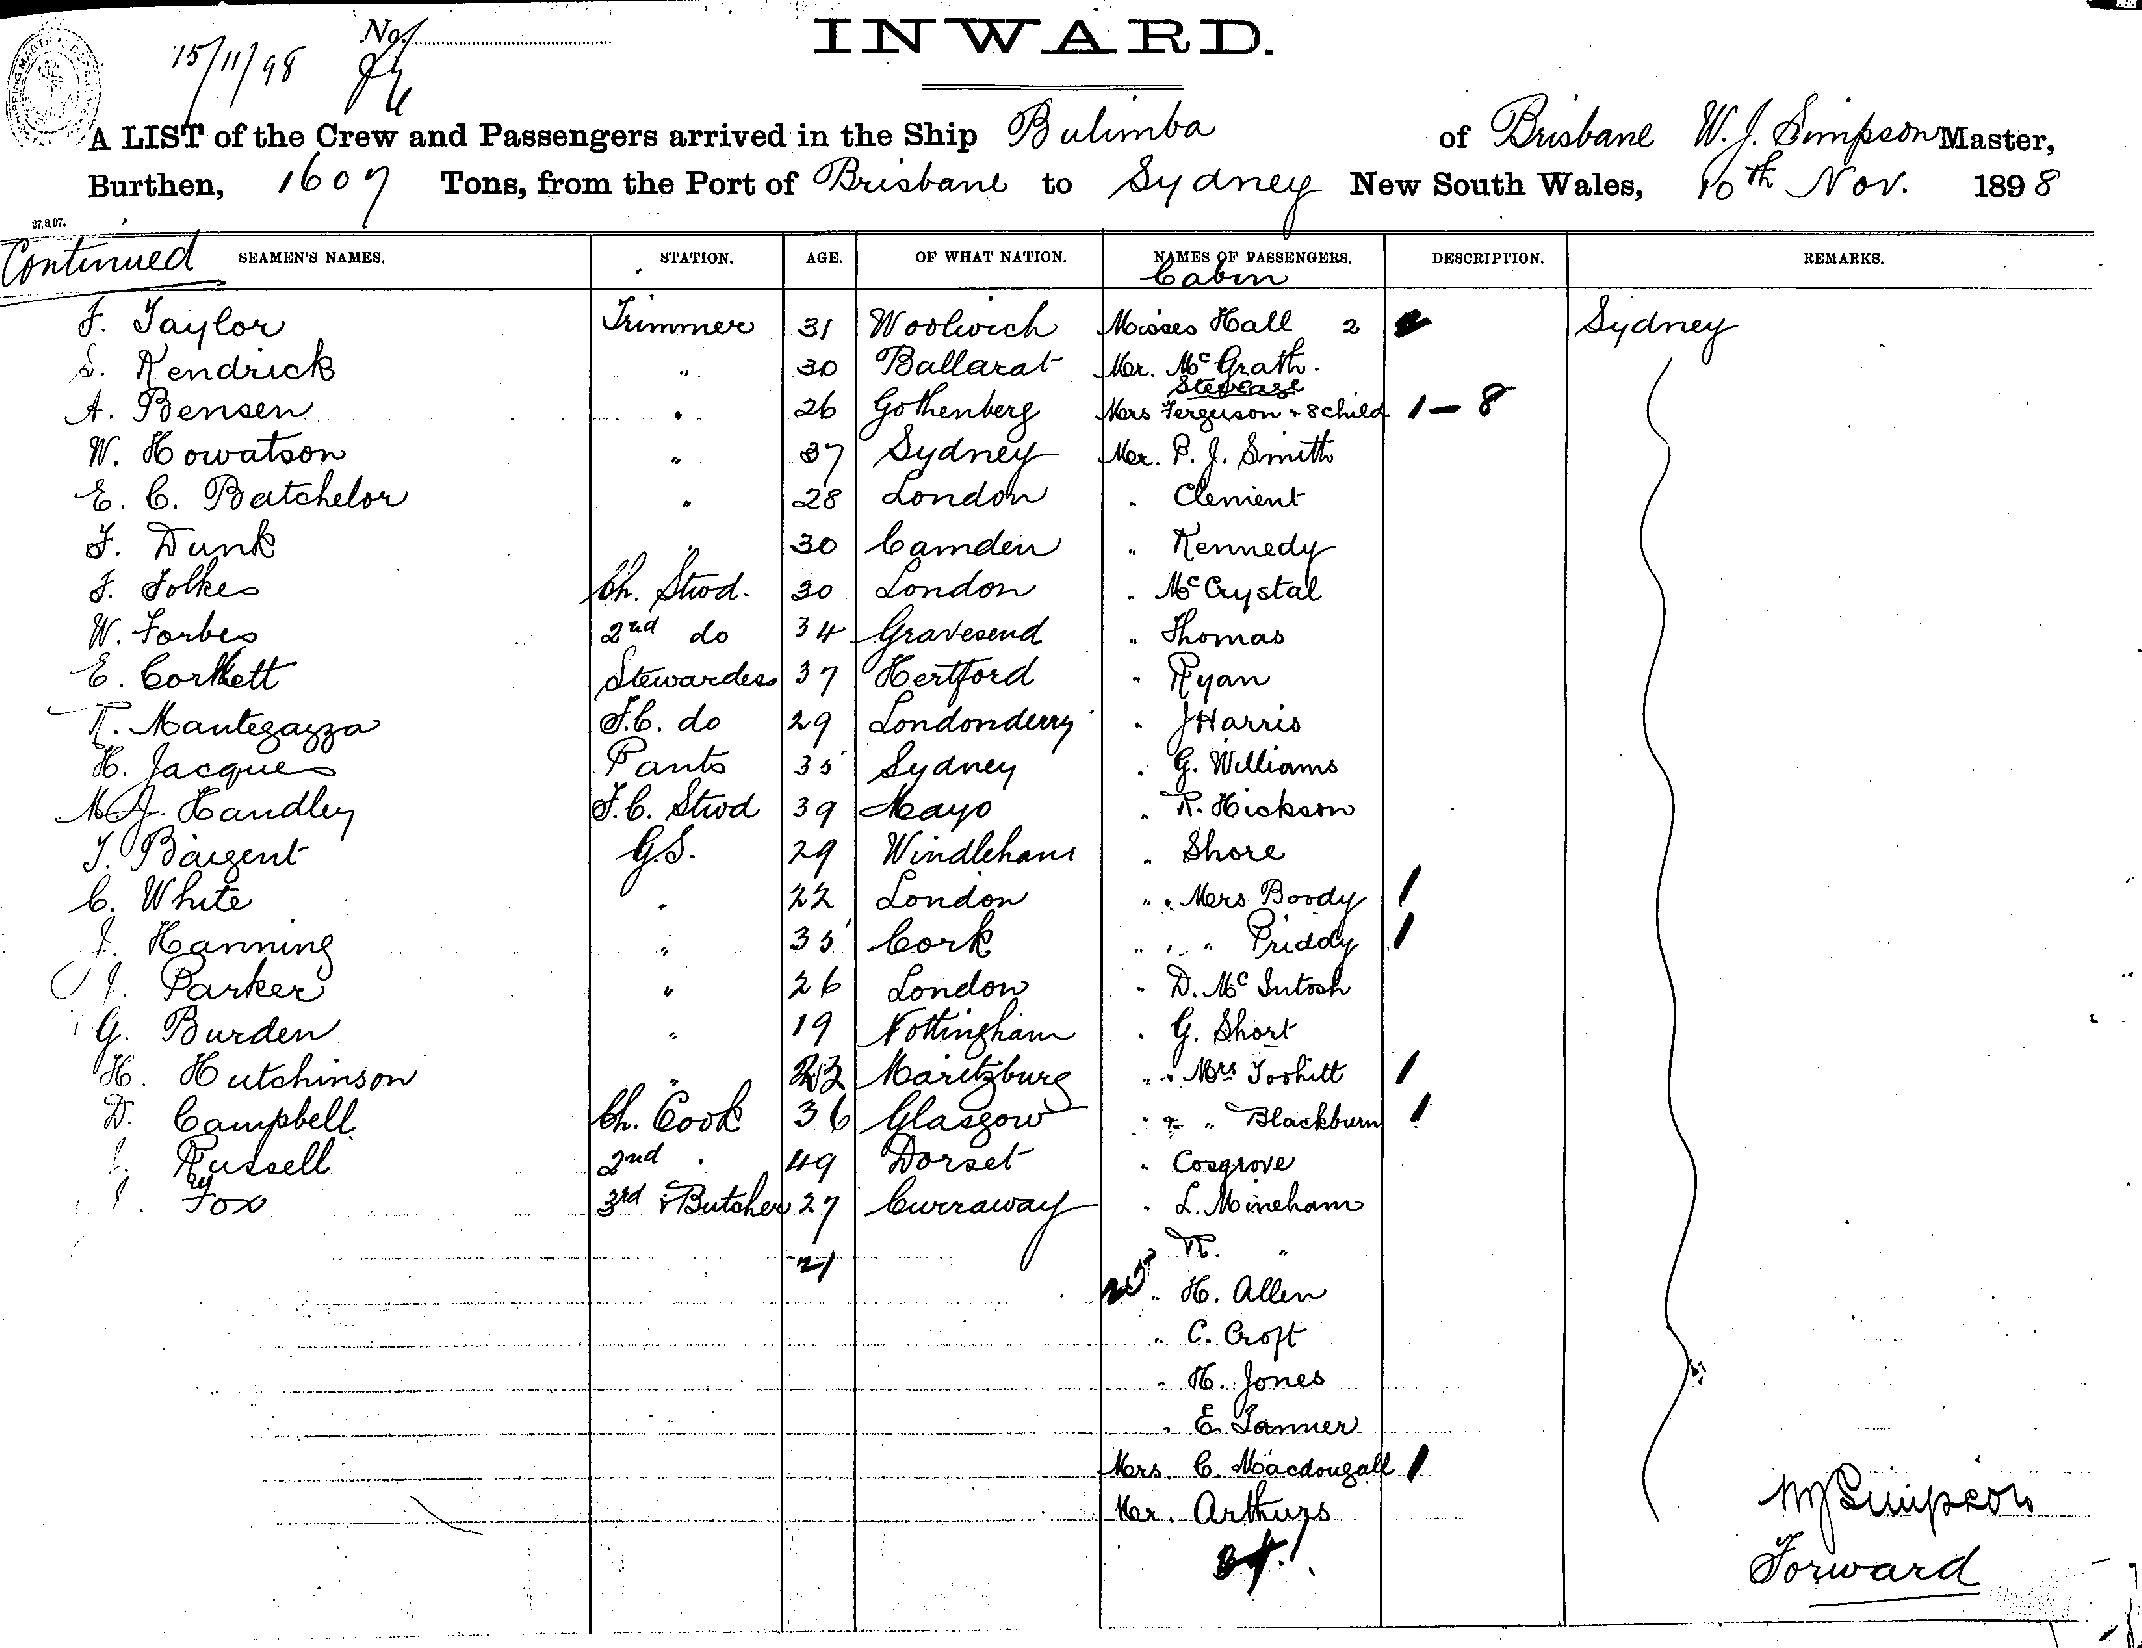 15/11/98 No.
INWARD.
A LIST of the Crew and Passengers arrived in the Ship Bulimba of Brisbane W. J. Simpson Master,
Burthen, 1607 Tons, from the Port of Brisbane to Sydney New South Wales, 10th Nov. 1898
27.8.97.
Continued SEAMEN'S NAMES. STATION. AGE. OF WHAT NATION. NAMES OF PASSENGERS. DESCRIPTION. REMARKS.
Cabin
F. Taylor Trimmer 31 Woolwich Misses Hall 2 2 Sydney
S. Kendrick " 30 Ballarat Mr. McGrath.
Steerage
A. Bensen " 26 Gothenberg Mrs Ferguson + 8 child 1 - 8
W. Howatson " 37 Sydney Mr. P. J. Smith
E. C. Batchelor " 28 London " Clement
F. Dunk " 30 Camden " Kennedy
F. Folkes Ch. Stwd. 30 London " McCrystal
W. Forbes 2nd do 34 Gravesend " Thomas
E. Corkett Stewardess 37 Hertford " Ryan
R. Mantegazza F.C. do 29 Londonderry " J Harris
H. Jacques Pants 35 Sydney " G. Williams
M. J. Handley F.C. Stwd 39 Mayo " R. Hickson
T. Bargent G.S. 29 Windleham " Shore
C. White " 22 London " " Mrs Boody 1
J. Hanning " 35 Cork " " " Priddy 1
J. Parker " 26 London " D. McIntosh
G. Burden " 19 Nottingham " G. Short
H. Hutchinson " 23 Maritzburg " " Mrs Toohill 1
D. Campbell Ch. Cook 36 Glasgow " " " Blackburn 1
Russell 2nd " 49 Dorset " Cosgrove
Fox 3rd & Butcher 27 Curraway " L. Mineham
21 " R. "
" H. Allen
" C. Croft
" H. Jones
" E. Tanner
Mrs. C. Macdougall 1
Mr. Arthurs
W J Simpson
34
Forward